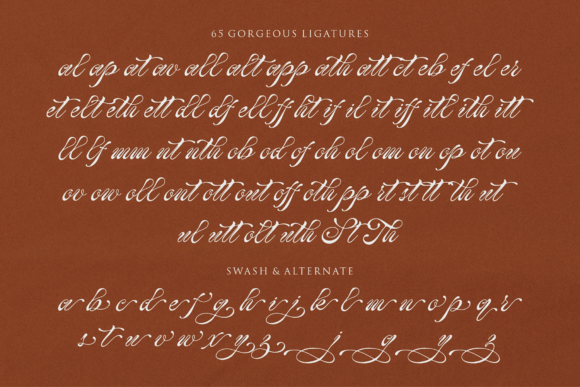 65 GORGEOUS LIGATURES
al ap at av all alt app ath att ct eb ef el er
et elt eth ett dl df ell ff ht if il it iff itl ith itt
ll lf mm nt nth ob od of oh ol om on op ot ou
ov ow oll ont ott out off oth pp rt st tt th ut
ul utt olt uth St Th
SWASH & ALTERNATE
a b c d e f g h i j k l m n o p q r
s t u v w x y z j g y z